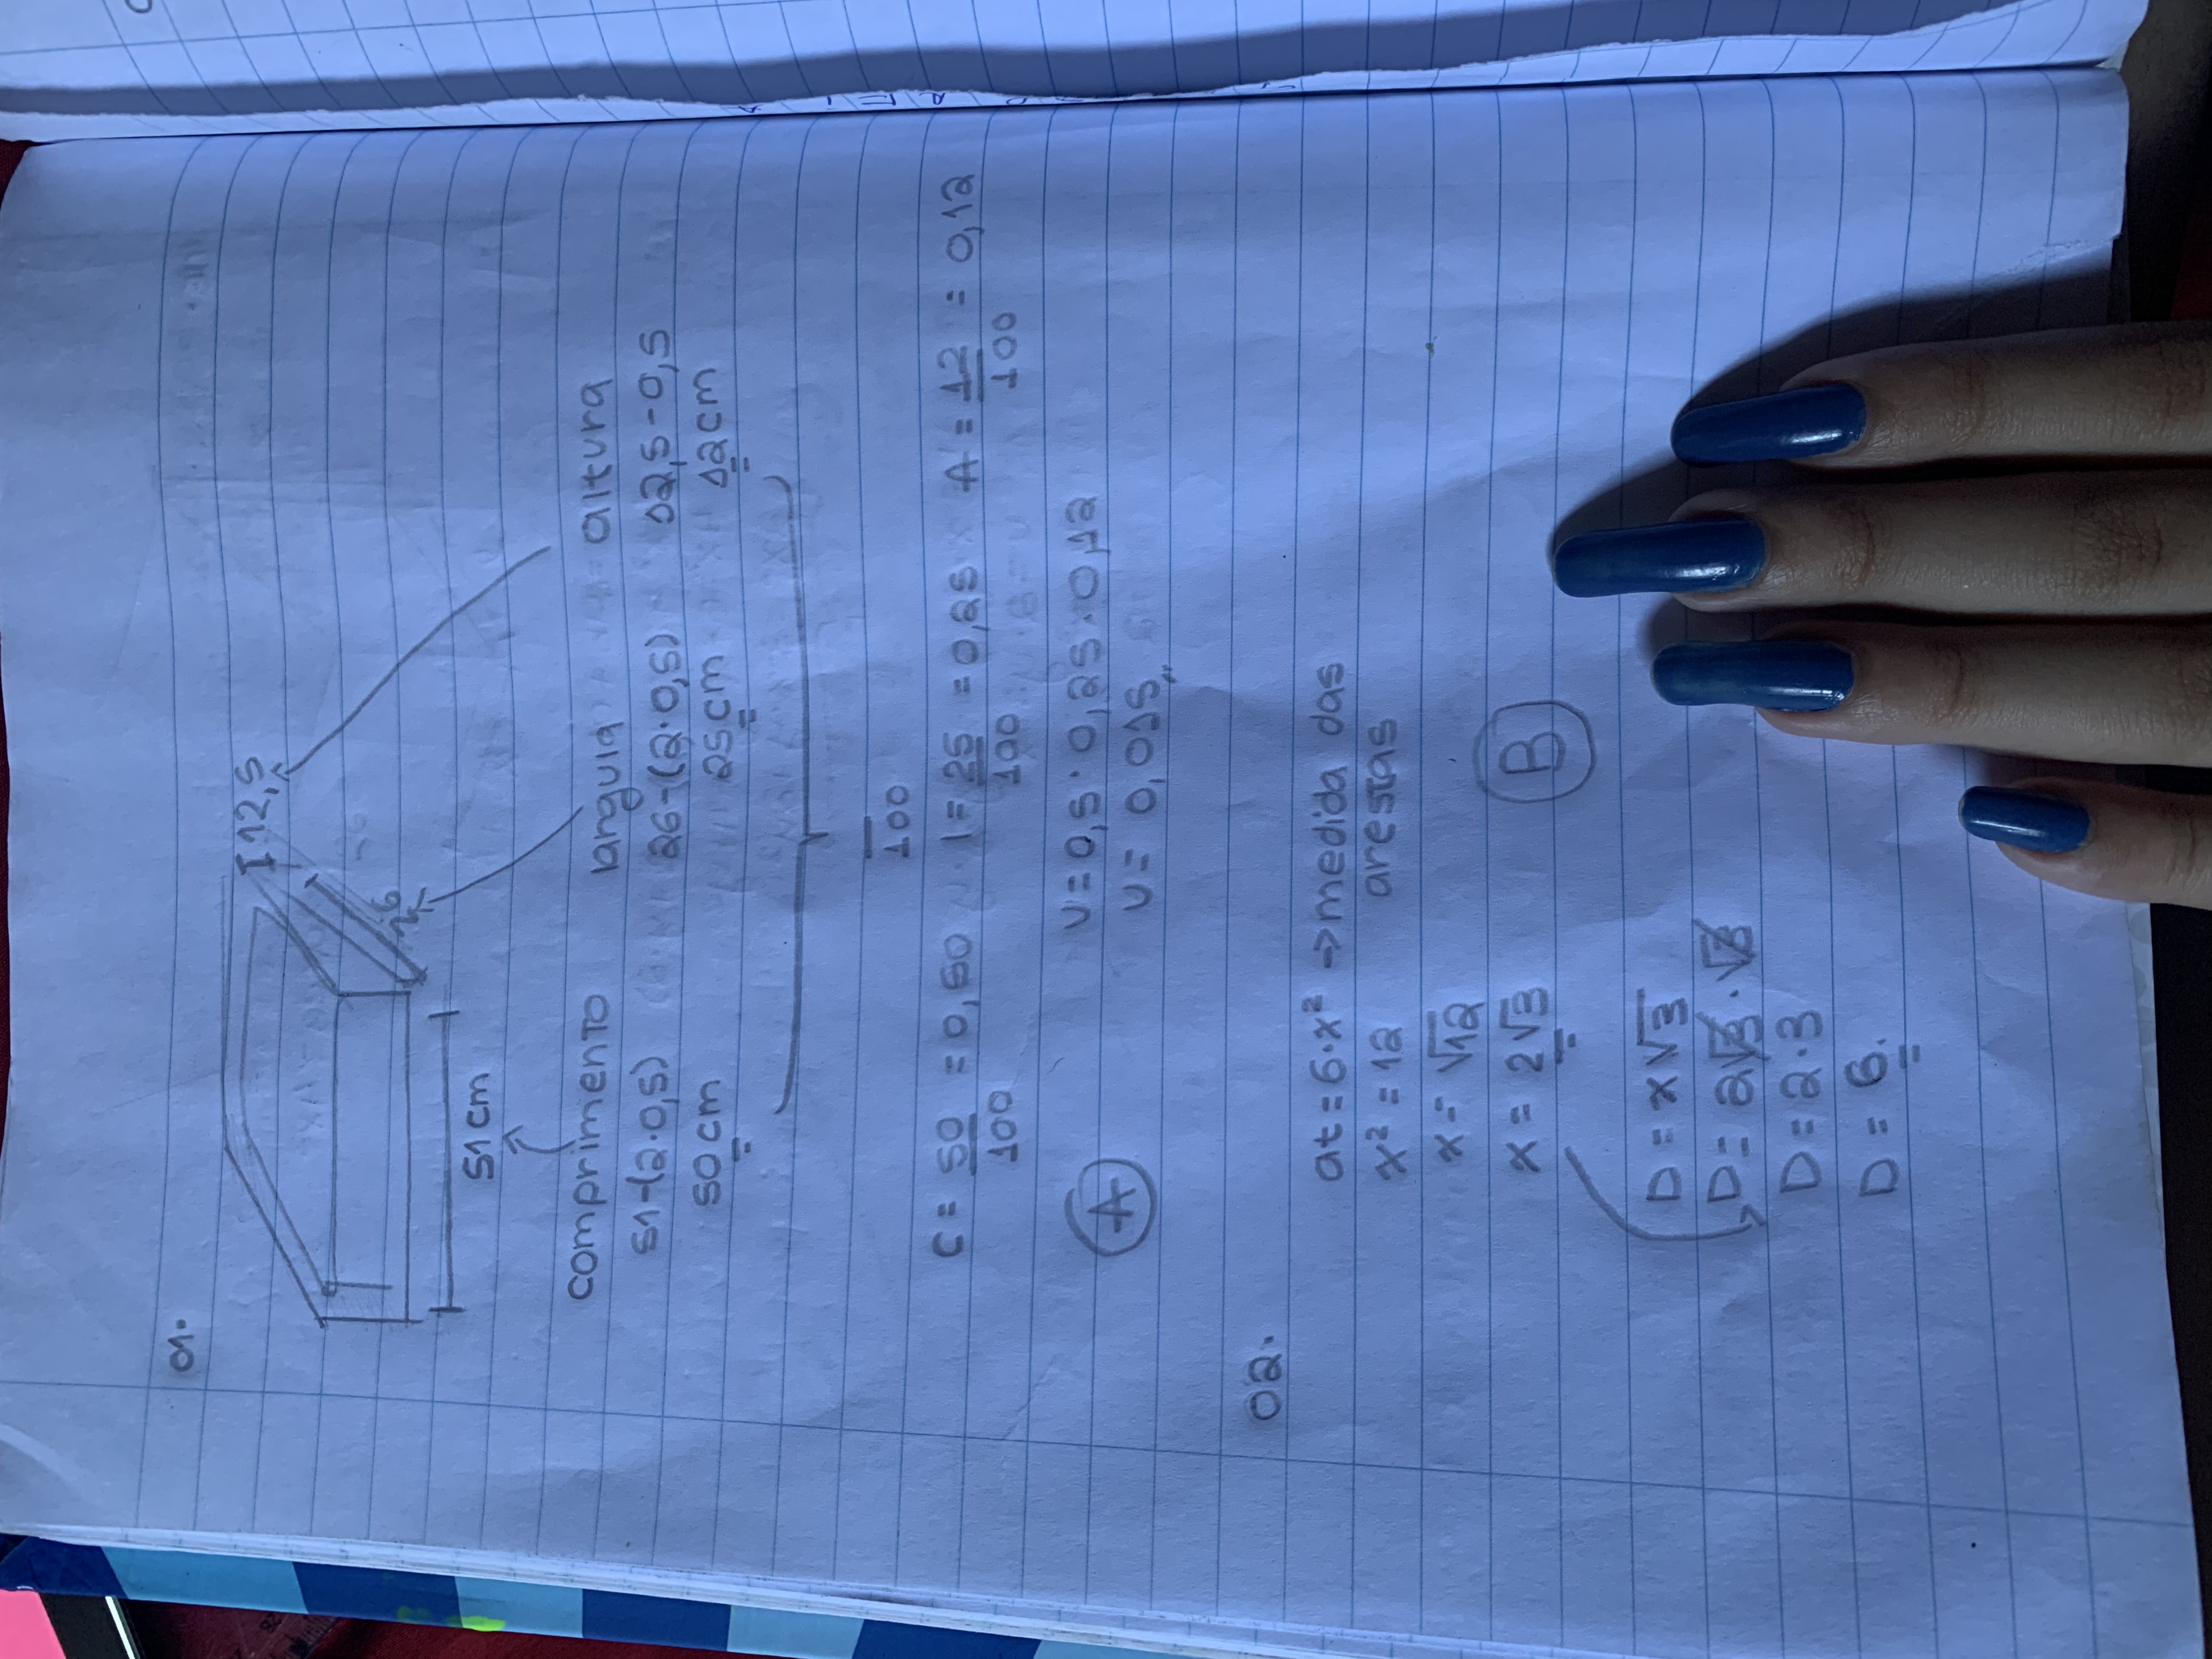 01.
12,5
26
51 cm
comprimento largura altura
51-(2·0,5) 26-(2·0,5) 12,5-0,5
50 cm 25 cm 12 cm
100
C = 50/100 = 0,50 l = 25/100 = 0,25 A = 12/100 = 0,12
A
V = 0,5 · 0,25 · 0,12
V = 0,015
02.
at = 6·x² → medida das
arestas
x² = 12
x = √12
x = 2√3
B
D = x√3
D = 2√3 · √3
D = 2·3
D = 6.